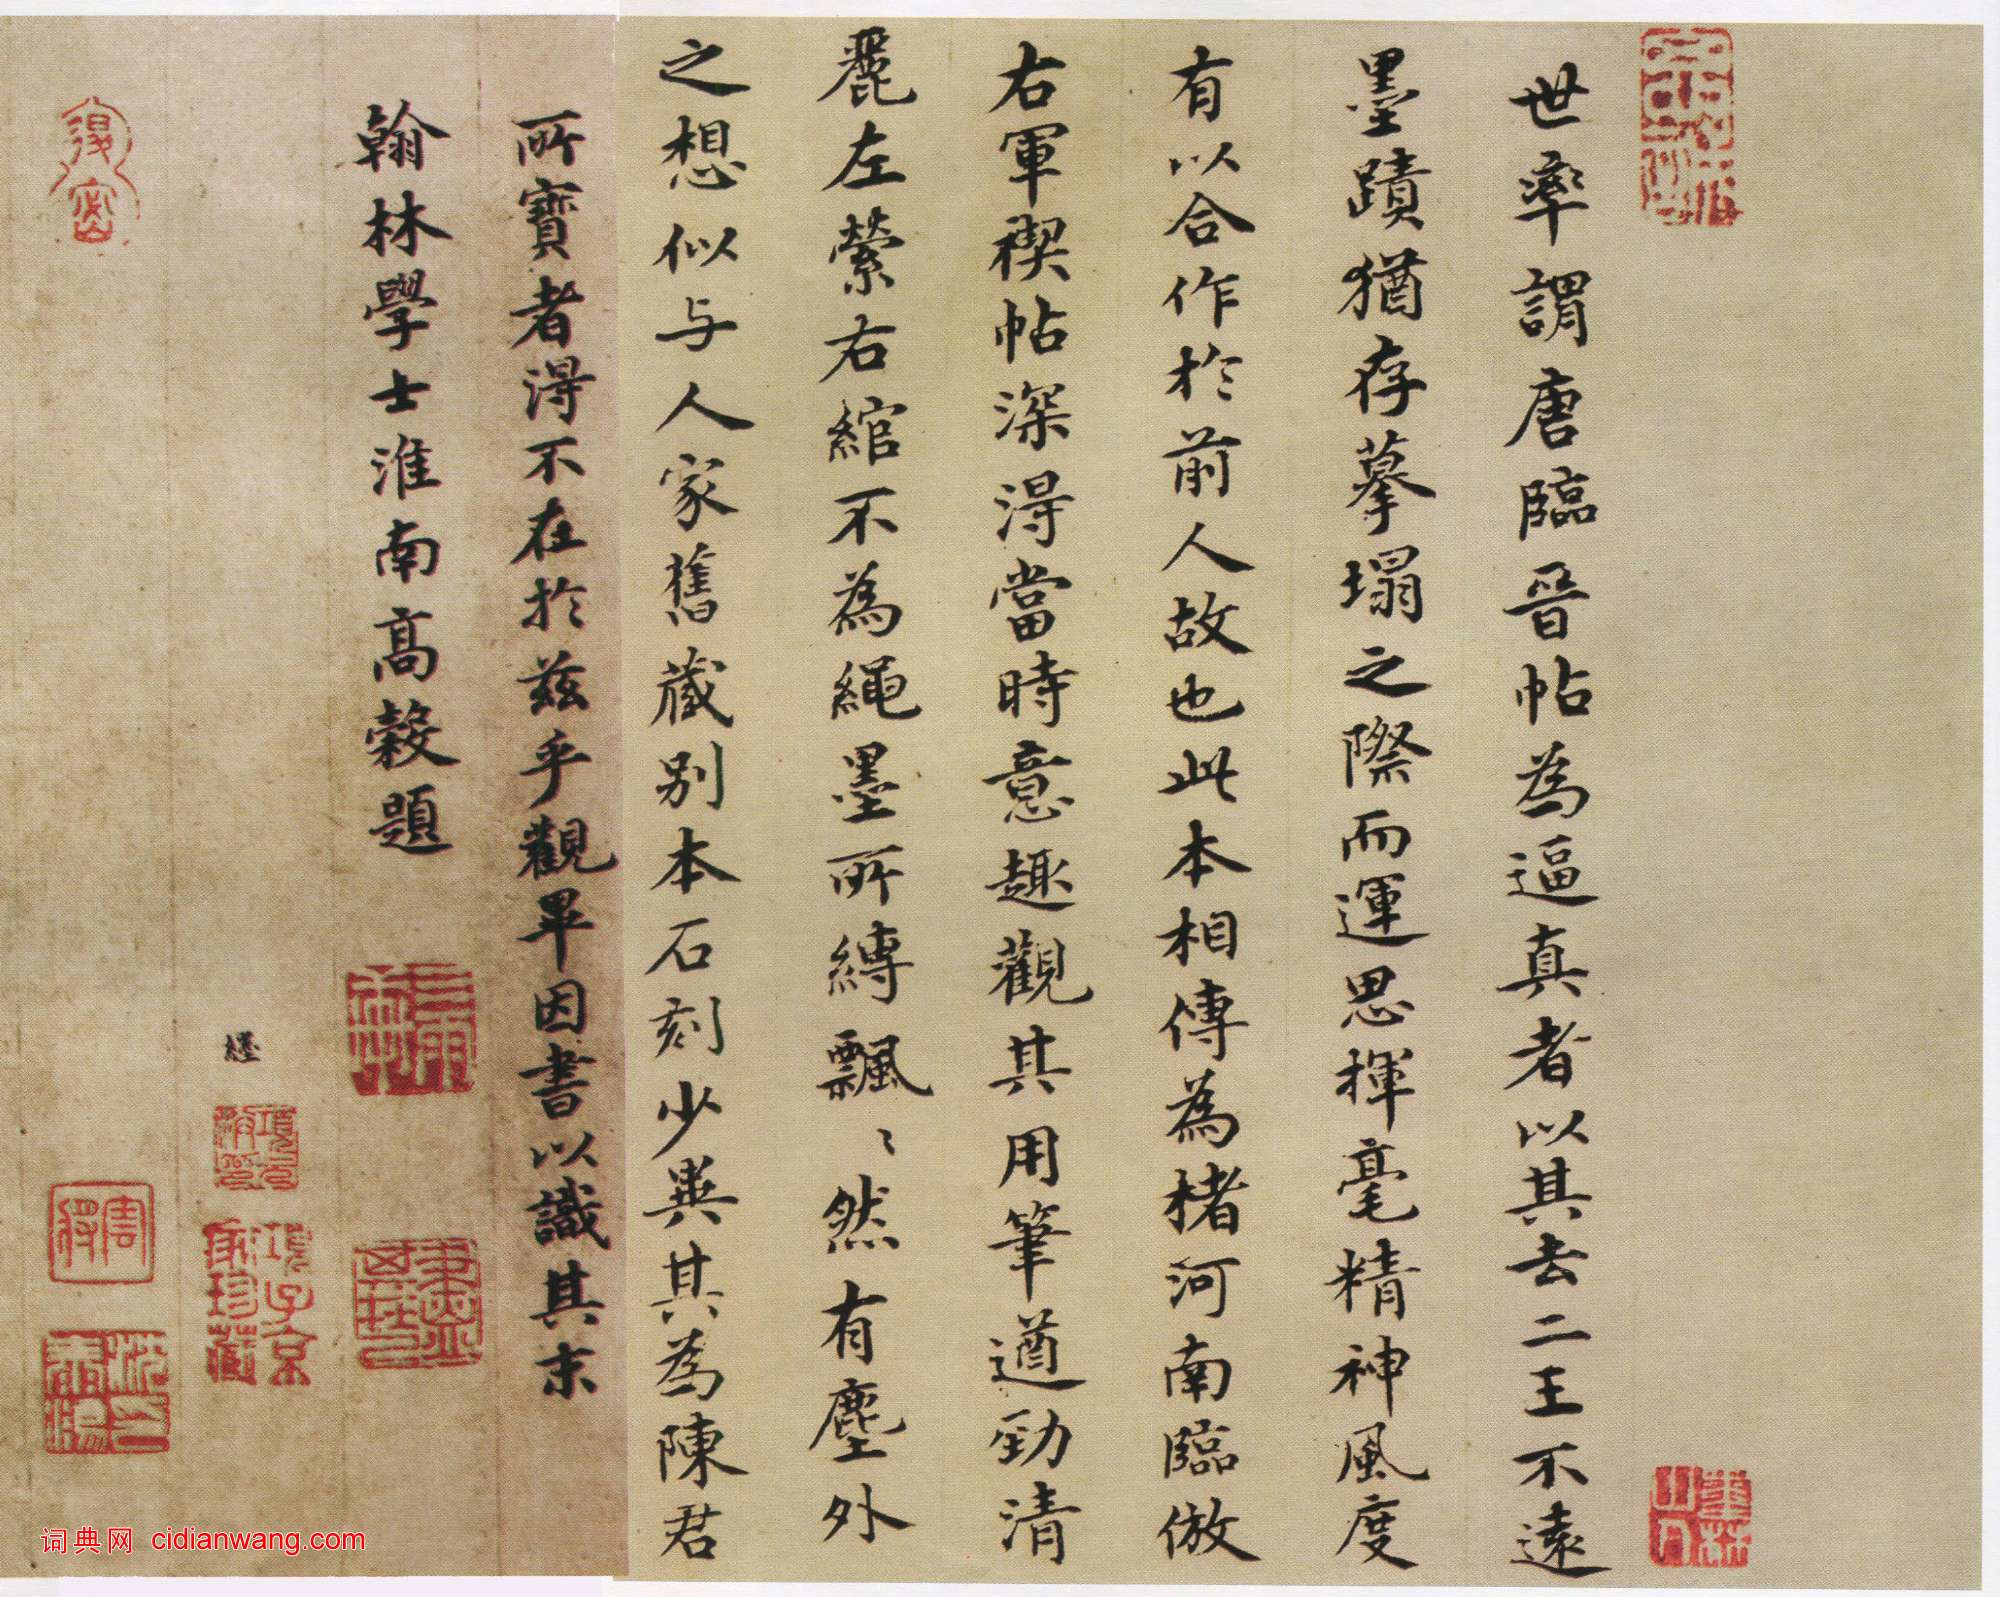 世率謂唐臨晉帖為逼真者以其去二王不遠
墨蹟猶存摹塌之際而運思揮毫精神風度
有以合作於前人故也此本相傳為楮河南臨倣
右軍禊帖深得當時意趣觀其用筆遒勁清
麗左縈右綰不為繩墨所縛飄〻然有塵外
之想似与人家舊藏別本石刻少異其為陳君
所寶者得不在於茲乎觀畢因書以識其末
翰林學士淮南高榖題
項子京家珍藏
词典网 cidianwang.com